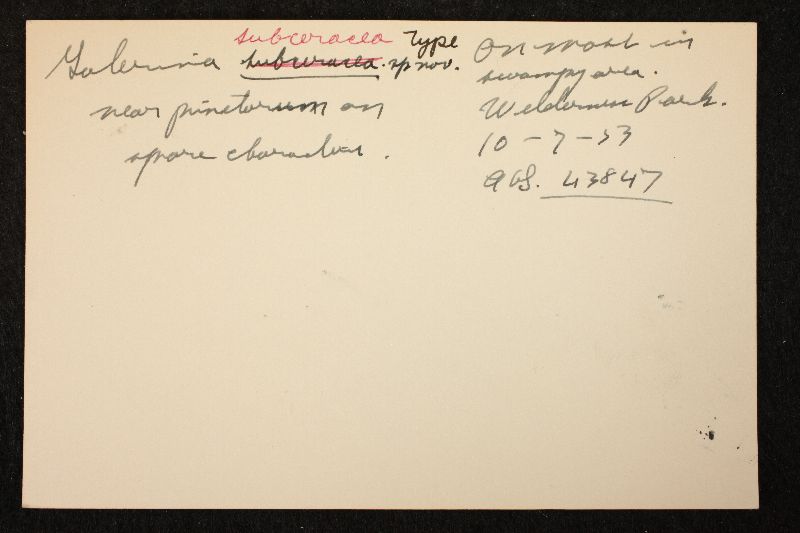 subceracea Type
Galerina subceracea. sp nov.
near pinetorum on
spore characters.
On moss in
swampy area.
Wilderness Park.
10-7-53
AHS. 43847